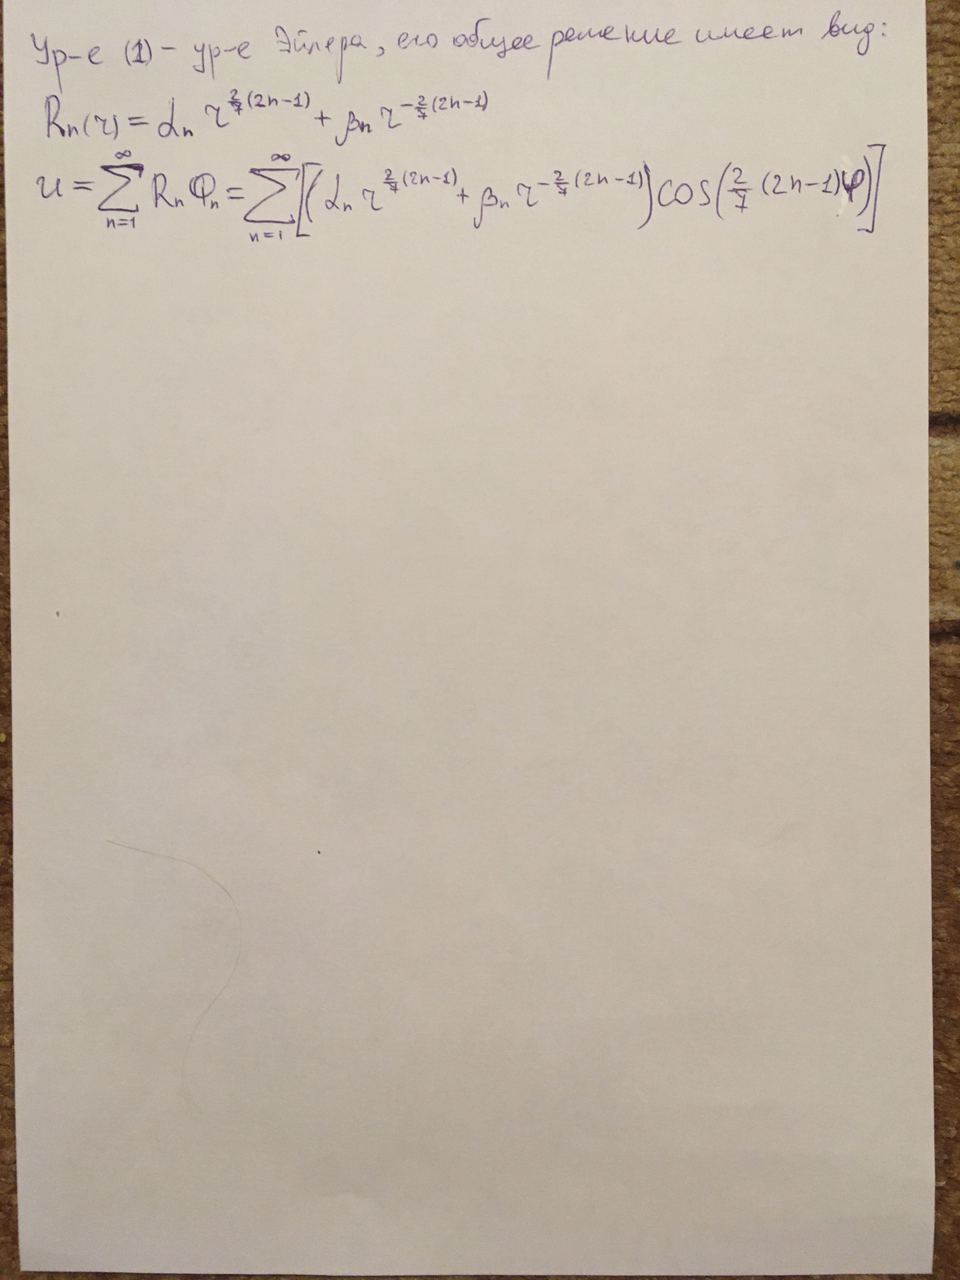 Ур-е (1) - ур-е Эйлера, его общее решение имеет вид:
Rₙ(r) = αₙ r^{2/7(2n-1)} + βₙ r^{-2/7(2n-1)}
u = ∑_{n=1}^{∞} Rₙ Φₙ = ∑_{n=1}^{∞} [(αₙ r^{2/7(2n-1)} + βₙ r^{-2/7(2n-1)}) cos(2/7 (2n-1)φ)]